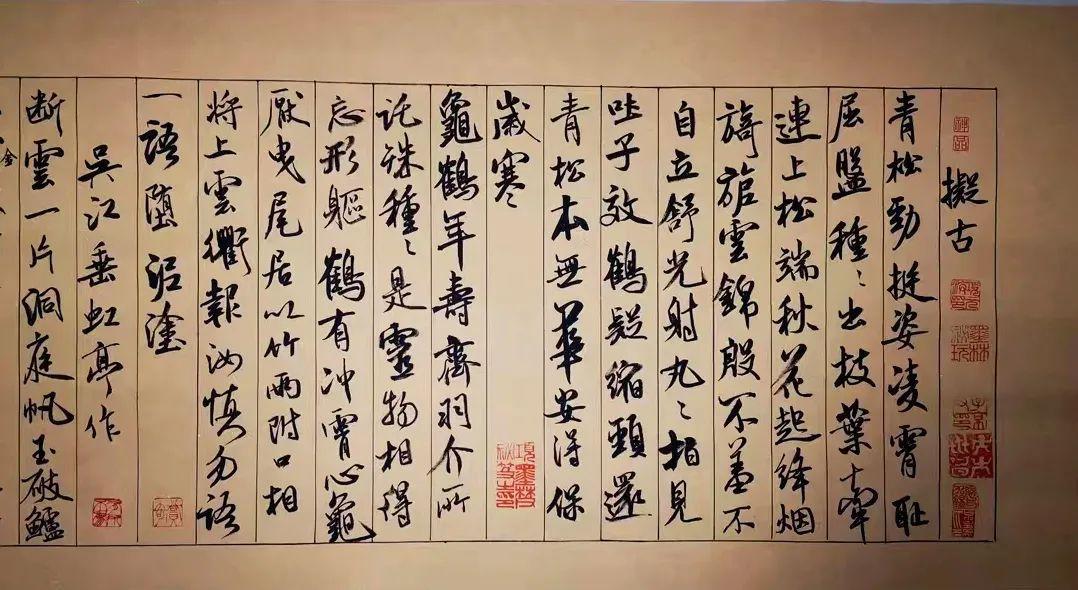 擬古
青松勁挺姿凌霄恥
屈盤種〻出枝葉牽
連上松端秋花起絳烟
旖旎雲錦殷不羞不
自立舒光射丸〻柏見
吐子效鶴疑縮頸還
青松本無華安得保
歲寒
龜鶴年壽齊羽介所
託殊種〻是靈物相得
忘形軀鶴有冲霄心龜
厭曳尾居以竹兩附口相
將上雲衢報汝慎勿語
一語墮泥塗
吳江垂虹亭作
断雲一片洞庭帆玉破鱸
金